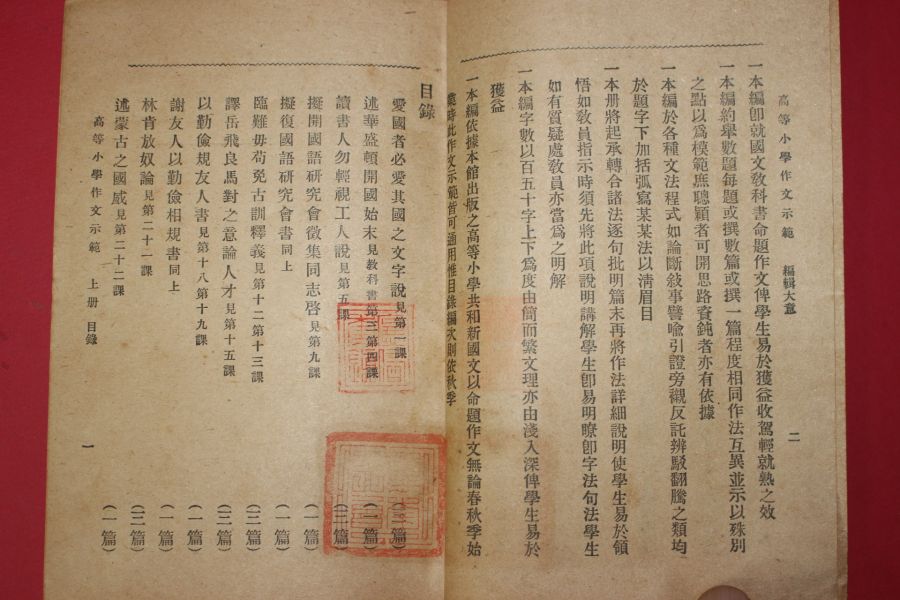 高等小學作文示範　編輯大意　二
一本編卽就國文敎科書命題作文俾學生易於獲益收駕輕就熟之效
一本編約舉數題每題或撰數篇或撰一篇程度相同作法互異並示以殊別
之點以爲模範庶聰穎者可開思路資鈍者亦有依據
一本編於各種文法程式如論斷敍事譬喩引證旁襯反託辨駁翻騰之類均
於題字下加括弧寫某某法以淸眉目
一本册將起承轉合諸法逐句批明篇末再將作法詳細說明使學生易於領
悟如敎員指示時須先將此項說明講解學生卽易明暸卽字法句法學生
如有質疑處敎員亦當爲之明解
一本編字數以百五十字上下爲度由簡而繁文理亦由淺入深俾學生易於
獲益
一本編依據本館出版之高等小學共和新國文以命題作文無論春秋季始
業時此作文示範皆可通用惟目錄編次則依秋季
目錄
愛國者必愛其國之文字說見第一課　（二篇）
述華盛頓開國始末見敎科書第三第四課　（一篇）
讀書人勿輕視工人說見第五課　（二篇）
擬開國語研究會徵集同志啓見第九課　（一篇）
擬復國語研究會書同上　（一篇）
臨難毋苟免古訓釋義見第十二第十三課　（二篇）
譯岳飛良馬對之意論人才見第十五課　（二篇）
以勤儉規友人書見第十八第十九課　（一篇）
謝友人以勤儉相規書同上　（一篇）
林肯放奴論見第二十一課　（二篇）
述蒙古之國威見第二十二課　（一篇）
高等小學作文示範　上册　目錄　一